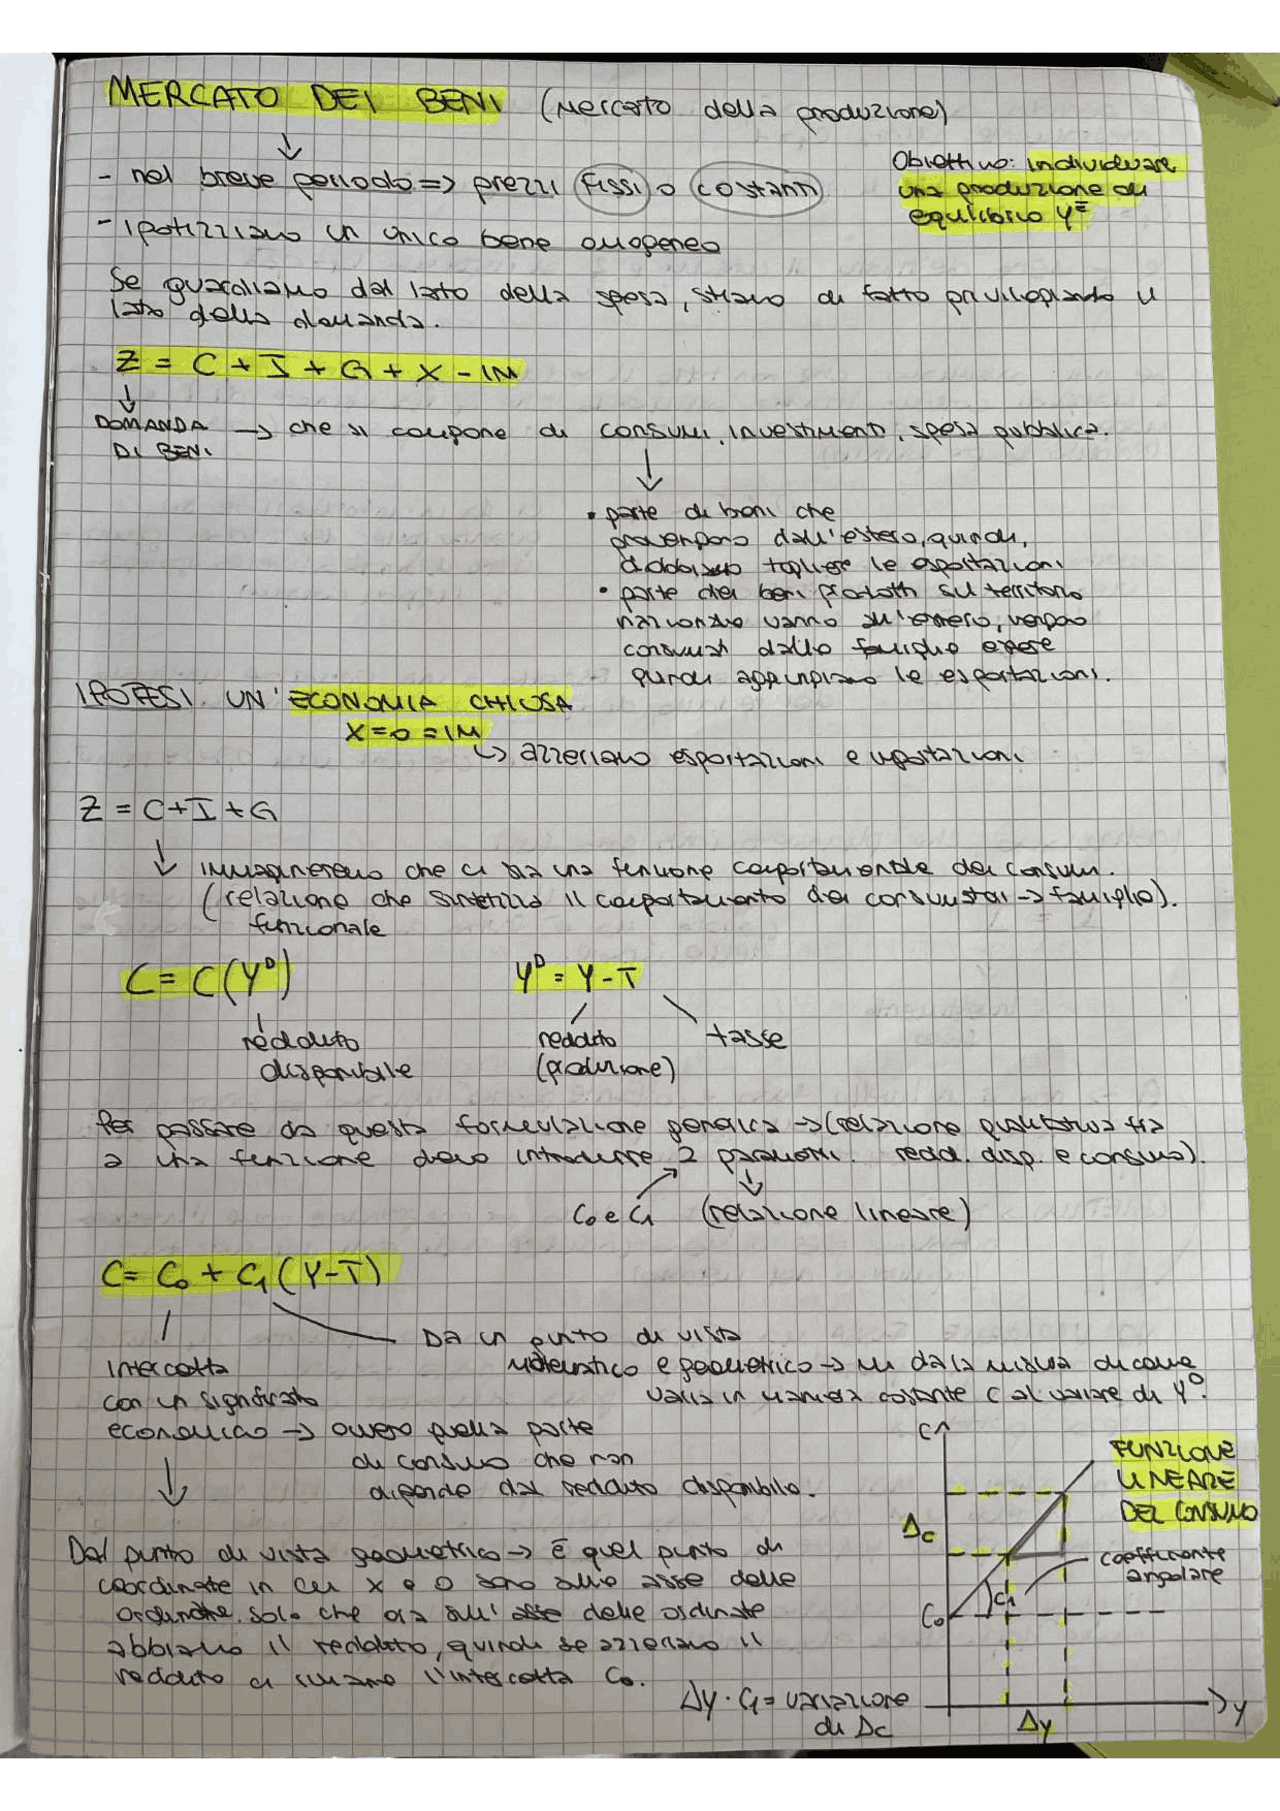 MERCATO DEI BENI (Mercato della produzione)
↓
- nel breve periodo => prezzi fissi o costanti
Obiettivo: individuare
una produzione di
equilibrio Y=
- ipotizziamo un unico bene omogeneo
Se guardiamo dal lato della spesa, stiamo di fatto privilegiando il
lato della domanda.
Z = C + I + G + X - IM
↓
DOMANDA → che si compone di consumi, investimenti, spesa pubblica.
DI BENI
↓
• parte di beni che
provengono dall'estero, quindi,
dobbiamo togliere le esportazioni
• parte dei beni prodotti sul territorio
nazionale vanno all'estero, vengono
consumati dalle famiglie estere
quindi aggiungiamo le esportazioni.
IPOTESI UN'ECONOMIA CHIUSA
X=0=IM
↳ azzeriamo esportazioni e importazioni
Z = C+I+G
↓ immagineremo che ci sia una funzione comportamentale dei consumi.
(relazione che sintetizza il comportamento dei consumatori → famiglie).
funzionale
C= C(Yᴰ) Yᴰ = Y-T
reddito
disponibile
reddito
(produzione)
tasse
Per passare da questa formulazione generica →(relazione qualitativa tra
a una funzione devo introdurre 2 parametri. redd. disp. e consumo).
C₀ e C₁ (relazione lineare)
C= C₀ + C₁ (Y-T)
Da un punto di vista
matematico e geometrico → mi dà la misura di come
varia in maniera costante C al variare di Yᴰ.
intercetta
con un significato
economico → ovvero quella parte
di consumo che non
dipende dal reddito disponibile.
↓
Dal punto di vista geometrico → è quel punto di
coordinate in cui x e 0 sono sullo asse delle
ordinate, solo che ora sull'asse delle ordinate
abbiamo il reddito, quindi se azzeriamo il
reddito ci rimane l'intercetta C₀.
Δy · C₁ = variazione
di Δc
C
FUNZIONE
LINEARE
DEL CONSUMO
Δc
coefficiente
angolare
C₁
C₀
Δy
y